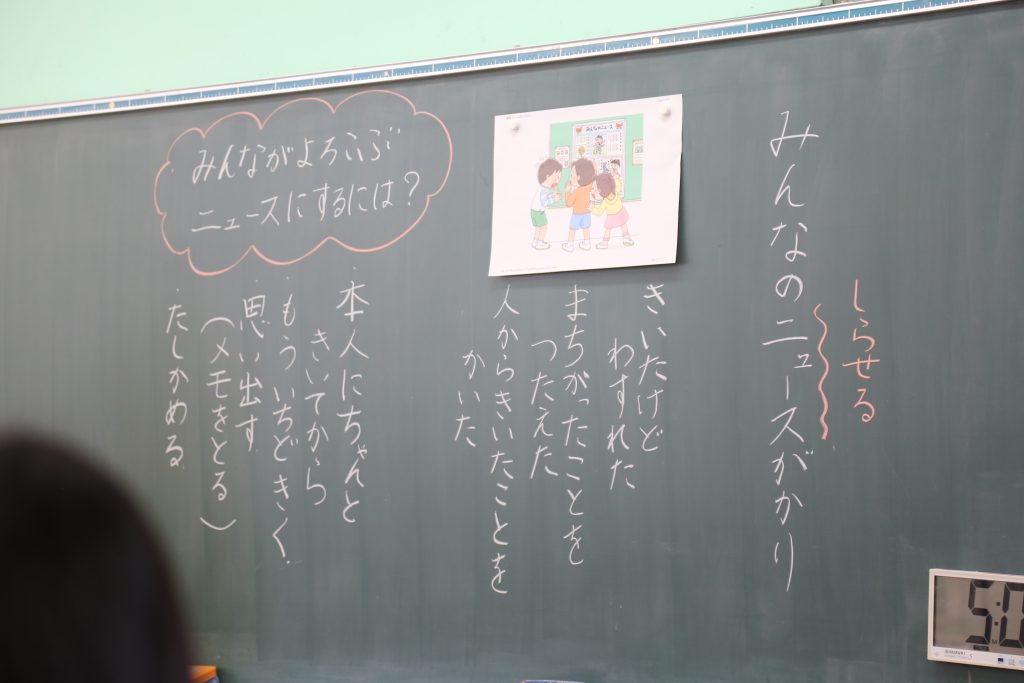 しらせる
みんなのニュースがかり
みんなのニュース
きいたけど
わすれた
まちがったことを
つたえた
人からきいたことを
かいた
みんながよろこぶ
ニュースにするには?
・本人にちゃんと
きいてから
・もういちどきく
・思い出す
(メモをとる)
・たしかめる
5:0